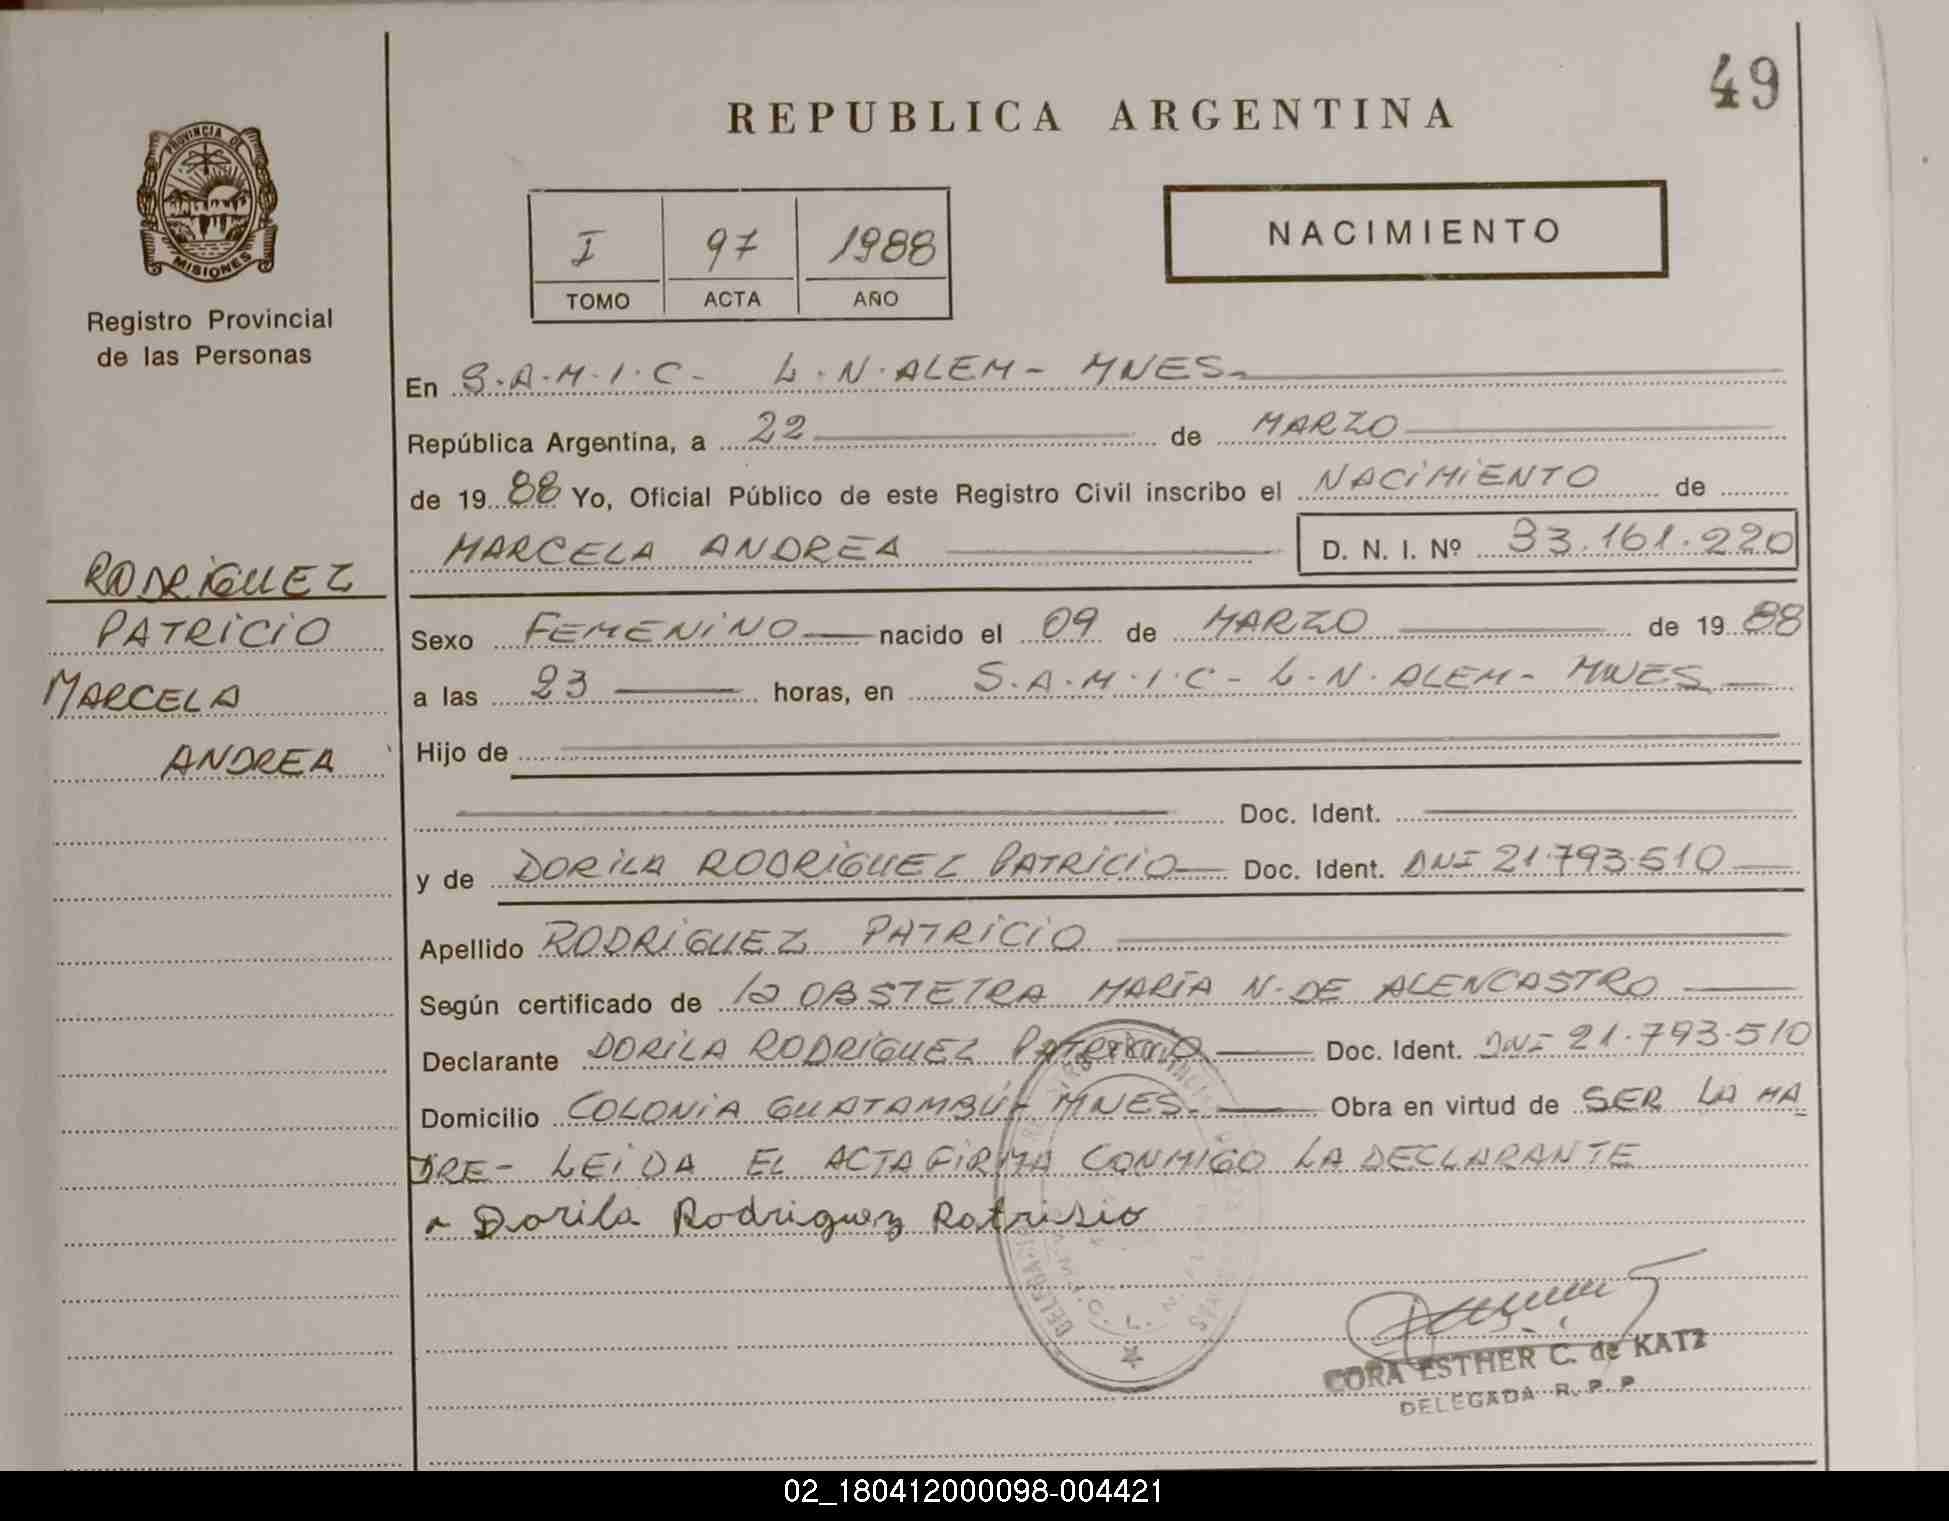 49
REPUBLICA ARGENTINA
PROVINCIA DE
MISIONES
Registro Provincial
de las Personas
I 97 1988
TOMO ACTA AÑO
NACIMIENTO
En S.A.M.I.C- L.N.ALEM- MNES-
República Argentina, a 22 de MARZO
de 1988 Yo, Oficial Público de este Registro Civil inscribo el NACIMIENTO de
MARCELA ANDREA D. N. I. Nº 33.161.220
RODRIGUEZ
PATRICIO
MARCELA
ANDREA
Sexo FEMENINO nacido el 09 de MARZO de 1988
a las 23 horas, en S.A.M.I.C- L.N.ALEM- MNES
Hijo de
Doc. Ident.
y de DORILA RODRIGUEZ PATRICIO Doc. Ident. DNI 21.793.510
Apellido RODRIGUEZ PATRICIO
Según certificado de la OBSTETRA MARIA N. DE ALENCASTRO
Declarante DORILA RODRIGUEZ PATRICIO Doc. Ident. DNI 21.793.510
Domicilio COLONIA GUATAMBÚ- MNES- Obra en virtud de SER LA MA
DRE- LEIDA EL ACTA FIRMA CONMIGO LA DECLARANTE
Dorila Rodriguez Patrisio
CORA ESTHER C. de KATZ
DELEGADA R. P. P.
02_180412000098-004421